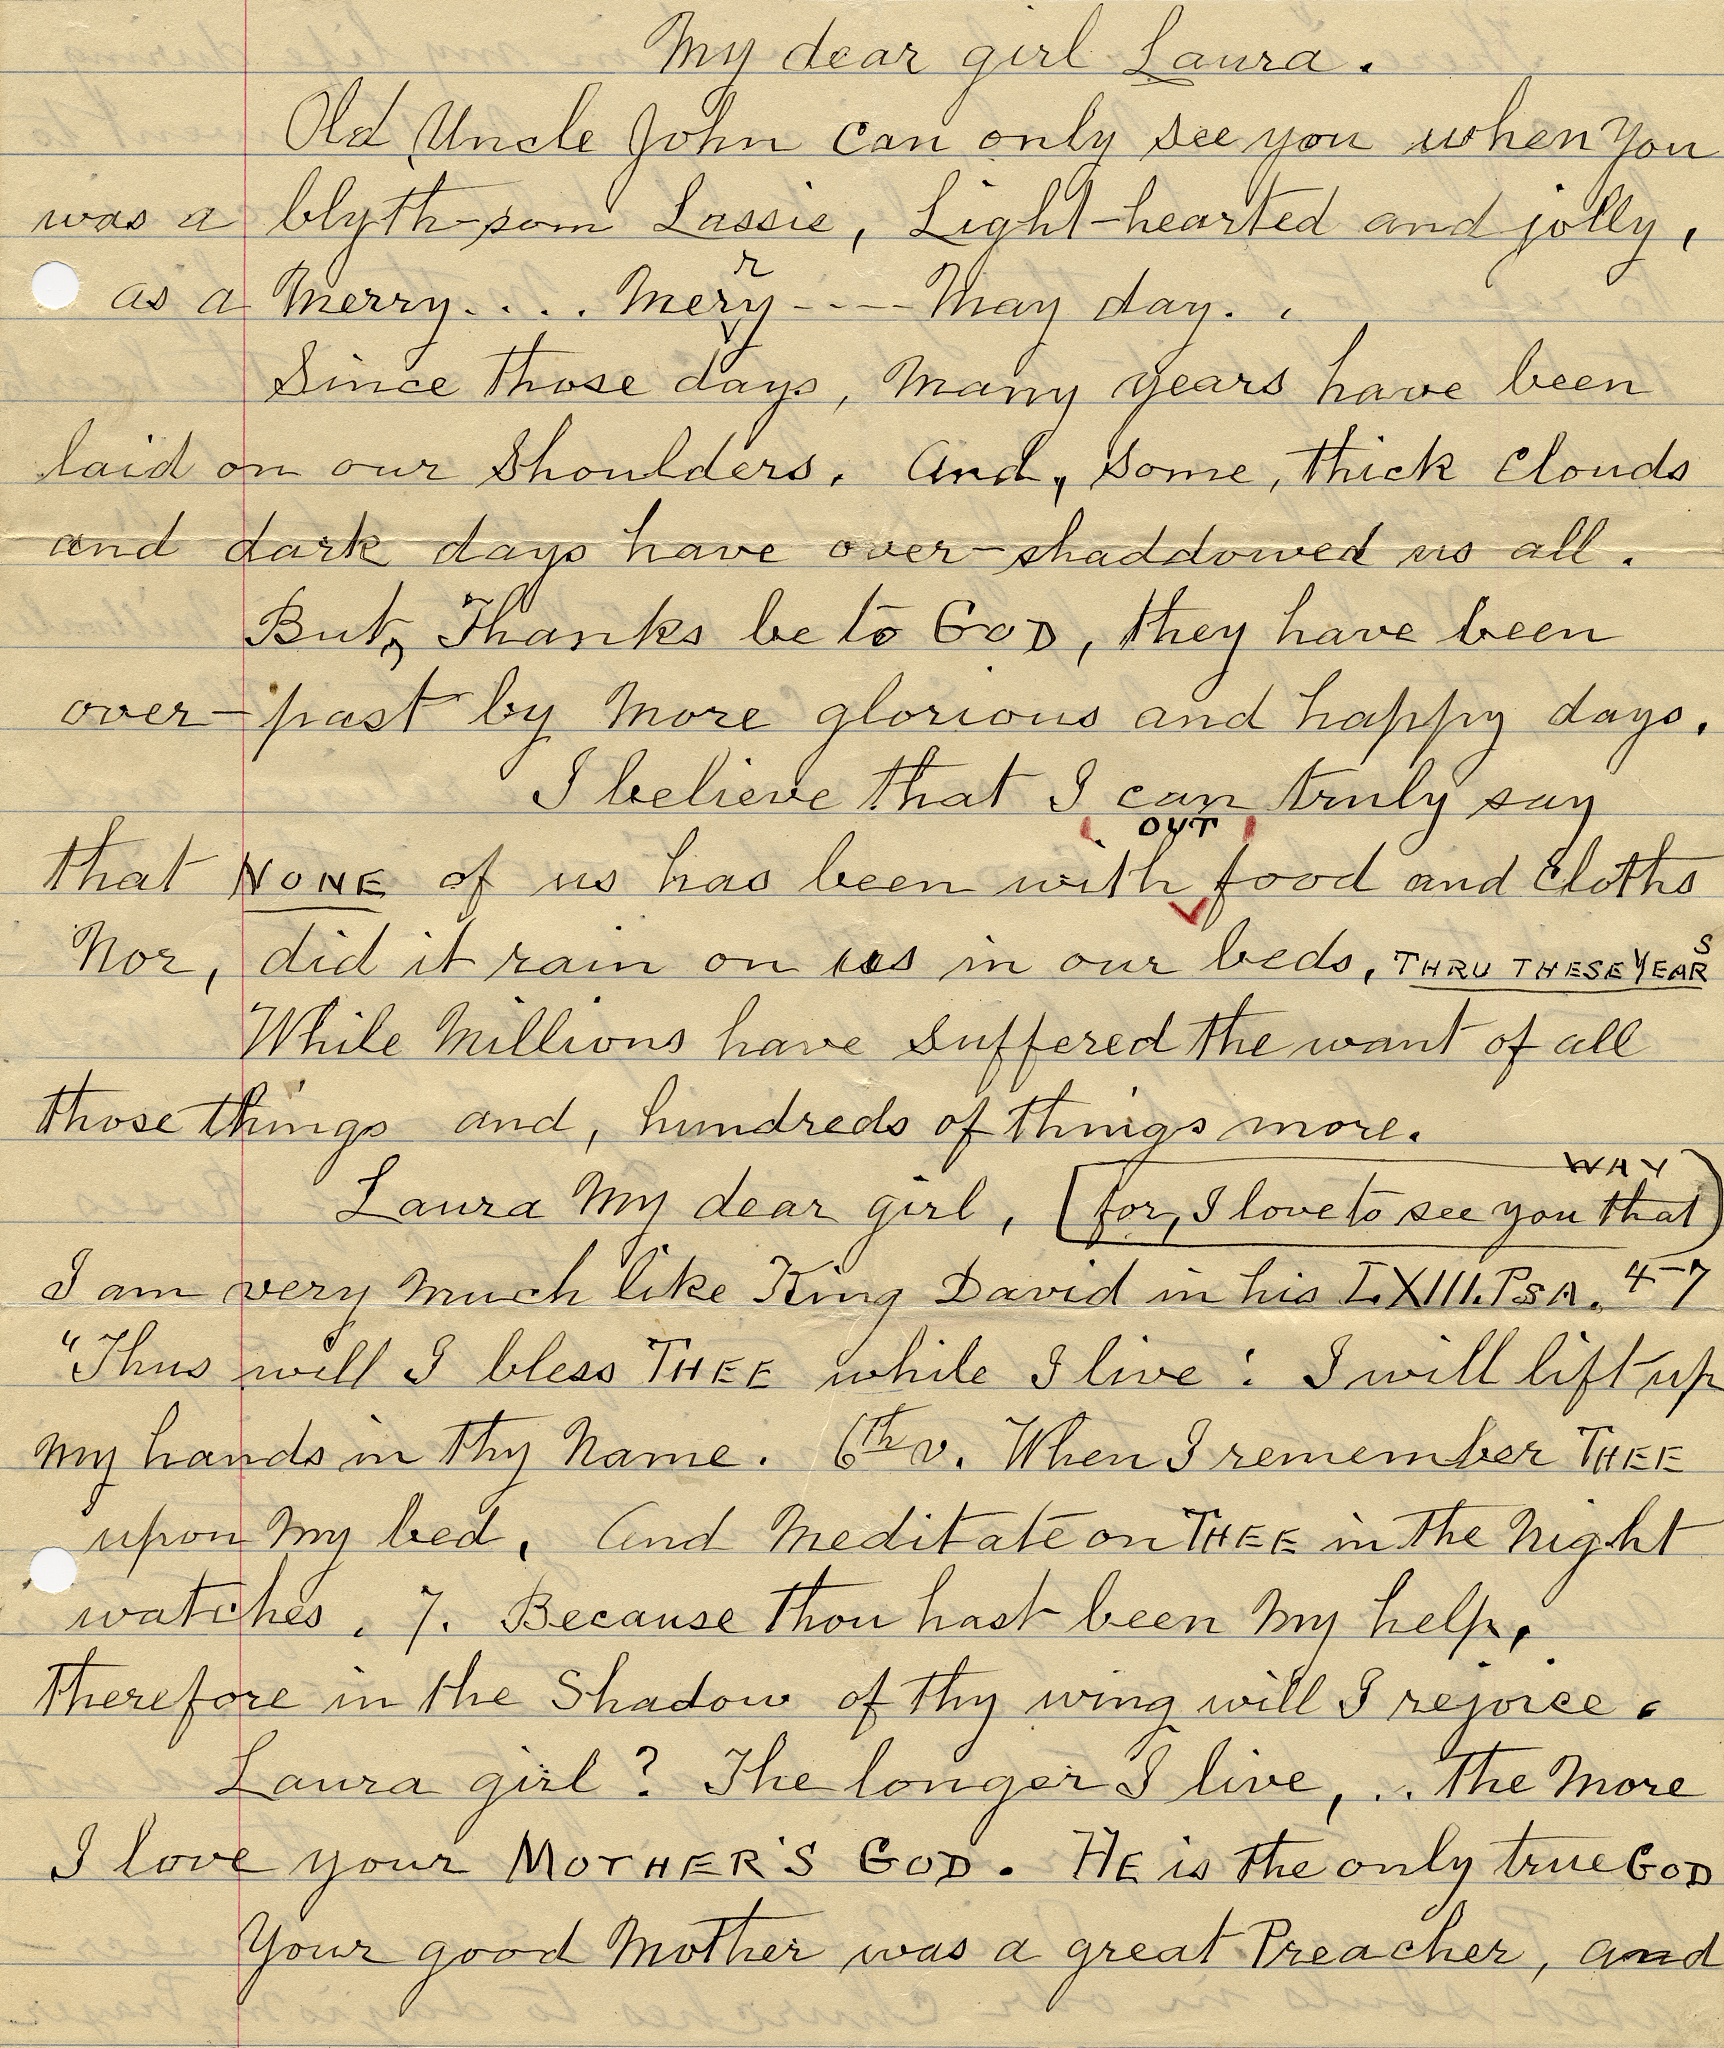 My dear girl Laura.
Old Uncle John can only see you when you
was a blyth-som Lassie, Light-hearted and jolly,
as a Merry.... Merry ---- May day. .
Since those days, Many years have been
laid on our shoulders. And, some, thick clouds
and dark days have over-shaddowed us all.
But, Thanks be to GOD, they have been
over-past by More glorious and happy days.
I believe that I can truly say
that NONE of us has been without food and cloths
Nor, did it rain on us in our beds, THRU THESE YEARS
While Millions have suffered the want of all
those things and, hundreds of things more.
Laura My dear girl, (for, I love to see you that WAY)
I am very Much like King David in his LXIII. PSA. 4-7
"Thus will I bless THEE while I live: I will lift up
My hands in thy Name. 6th v. When I remember THEE
upon My bed, And Meditate on THEE in the Night
watches. 7. Because thou hast been My help,
Therefore in the Shadow of thy wing will I rejoice.
Laura girl? The longer I live, .. the More
I love your MOTHER'S GOD. HE is the only true GOD
Your good Mother was a great Preacher, and